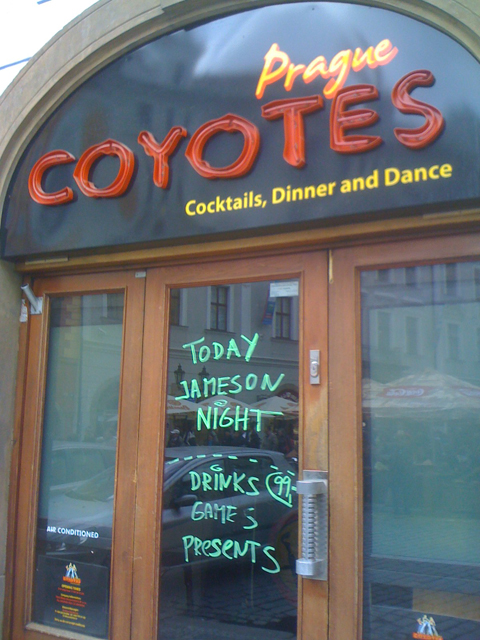 Prague
COYOTES
Cocktails, Dinner and Dance
TODAY
JAMESON
NIGHT
DRINKS 99,-
GAMES
PRESENTS
AIR CONDITIONED